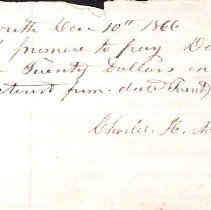 Dec 10th 1866
promise to pay
Twenty Dollars on
interest from date Twenty
Charles H. M